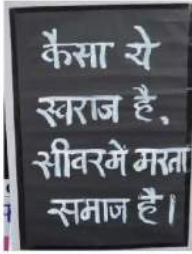 कैसा ये
स्वराज है,
सीवरमें मरता
समाज है।